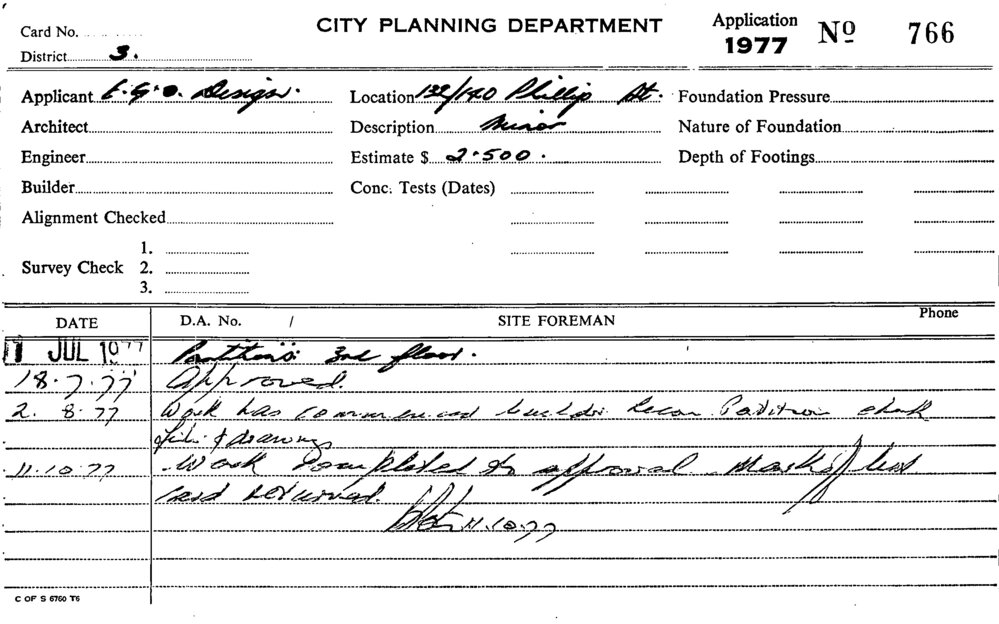 Card No.
CITY PLANNING DEPARTMENT
Application
1977
No 766
District 3.
Applicant E.G.O. Design.
Location 132/140 Phillip St.
Foundation Pressure
Architect
Description Minor
Nature of Foundation
Engineer
Estimate $ 2.500.
Depth of Footings
Builder
Conc. Tests (Dates)
Alignment Checked
Survey Check
1.
2.
3.
DATE
D.A. No. /
SITE FOREMAN
Phone
1 JUL 1977 Partitions 3rd floor.
18.7.77 Approved.
2. 8.77 Work has commenced builder Partition check
& drawings
11.10.77 Work completed to approval
card returned.
11.10.77
C OF S 6760 T6